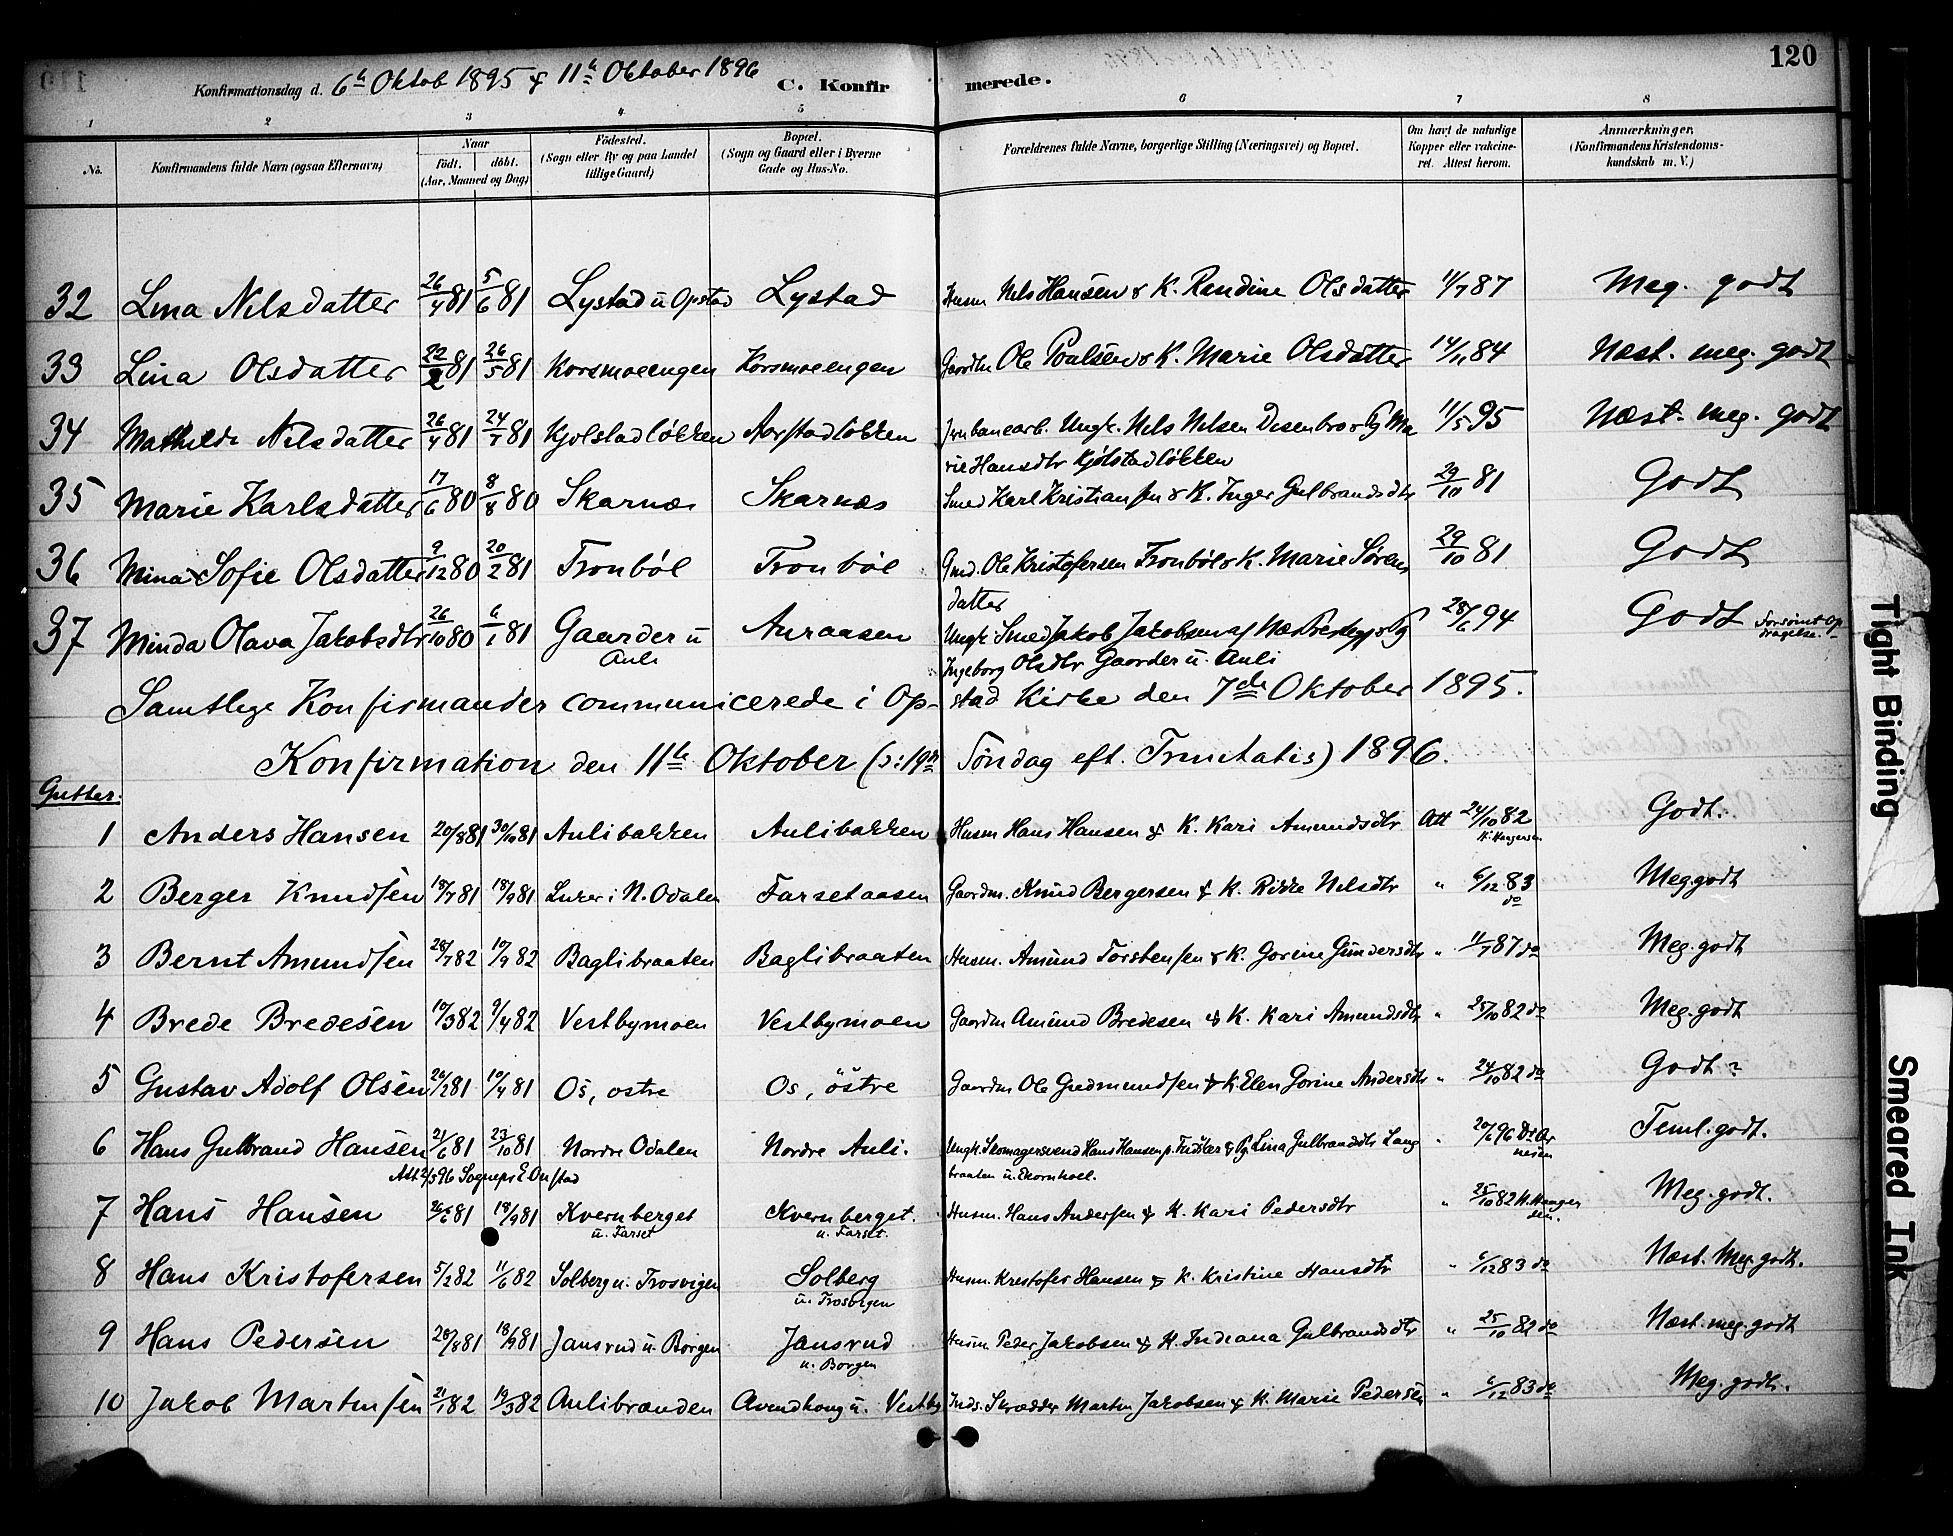 120
Konfirmationsdag d. 6te Oktob 1895 & 11te Oktober 1896 C. Konfirmerede.
1 2 3 4 5 6 7 8
No. Konfirmandens fulde Navn (ogsaa Efternavn) Naar født. døbt. (Aar, Maaned og Dag) Fødested. (Sogn eller By og paa Landet tillige Gaard) Bopæl. (Sogn og Gaard eller i Byerne Gade og Hus-No. Forældrenes fulde Navne, borgerlige Stilling (Næringsvei) og Bopæl. Om havt de naturlige Kopper eller vakcineret. Attest herom. Anmærkninger. (Konfirmandens Kristendomskundskab m. V.)
32 Lina Nilsdatter 26/4 81 5/6 81 Lystad u Opstad Lystad Husm Nels Hansen & K. Randine Olsdatter 11/7 87 Meg. godt
33 Lina Olsdatter 22/2 81 26/5 81 Korsmoeengen Korsmoeengen Gaardm Ole Poulsen & K. Marie Olsdatter 14/11 84 Næst. meg. godt
34 Mathilde Nilsdatter 26/4 81 24/7 81 Kjolstadløkken Aarstadløkken Jernbanearb. Ungk. Nels Nelsen Disenbro & Pg Ma
rie Hansdtr Kjølstadløkken 11/5 95 Næst. meg. godt
35 Marie Karlsdatter 17/6 80 8/8 80 Skarnæs Skarnæs Smed Karl Kristiansen & K. Inger Gulbrandsdtr 29/10 81 Godt
36 Mina Sofie Olsdatter 9/12 80 20/2 81 Tronbøl Tronbøl Gmd. Ole Kristofersen Tronbøl & K. Marie Sørens
datter 29/10 81 Godt
37 Minda Olava Jakobsdtr 26/10 80 6/1 81 Gaarder u Auli Auraasen Ungk Smed Jakob Jakobsen af & Pg
Ingeborg Olsdtr Gaarder u. Auli 28/6 94 Godt Forsømt Op
dragelse.
Samtlige Konfirmander communicerede i Opstad Kirke den 7de Oktober 1895.
Konfirmation den 11te Oktober (ɔ: 19de Søndag eft. Trinitatis) 1896.
Gutter.
1 Anders Hansen 20/8 81 30/10 81 Aulibakken Aulibakken Husm Hans Hansen & K. Kari Amundsdtr Att 24/10 82 Godt.
2 Berger Knudsen 18/7 81 18/9 81 Lurer i N. Odalen Farsetaasen Gaardm. Knud Bergersen & K. Rikke Nelsdtr " 6/12 83 do Meg. godt
3 Bernt Amundsen 28/7 82 10/9 82 Baglibraaten Baglibraaten Husm. Amund Torstensen & K. Gorine Gundersdtr " 11/7 87 do Meg. godt
4 Brede Bredesen 10/3 82 9/4 82 Vestbymoen Vestbymoen Gaardm Amund Bredesen & K. Kari Amundsdtr " 25/10 82 do Meg. godt
5 Gustav Adolf Olsen 20/2 81 10/4 81 Os, østre Os, østre Gaardm Ole Gudmundsen & K. Elen Gorine Andersdtr " 24/10 82 do Godt?
6 Hans Gulbrand Hansen 21/6 81 23/10 81 Nordre Odalen Nordre Auli. Ungk. Skomagersvend Hans Hansen p. & Pg. Lina Gulbrandsdtr Lang
braaten u. Ekornhoel. " 20/6 96 Teml. godt.
Att 2/5 96 Sognepr E Onstad
7 Hans Hansen 26/6 81 18/9 81 Kvernberget u. Farset Kvernberget. u. Farset. Husm. Hans Andersen & K. Kari Pedersdtr " 25/10 82 Meg. godt.
8 Hans Kristofersen 5/2 82 11/6 82 Solberg u. Trosvigen Solberg u. Trosvigen Husm. Kristofer Hansen & K. Kristine Hansdtr " 6/12 83 do Næst. Meg. godt.
9 Hans Pedersen 28/8 81 18/9 81 Jansrud u. Borgen Jansrud u. Borgen Husm Peder Jakobsen & K. Indiana Gulbrandsdtr " 25/10 82 do Næst. meg. godt
10 Jakob Martinsen 21/1 82 19/3 82 Aulibranden Avendhoug u. Vestby Inds. Skrædder Martin Jakobsen & K. Marie Pedersen " 6/12 83 do Meg. godt.
Tight Binding
Smeared Ink